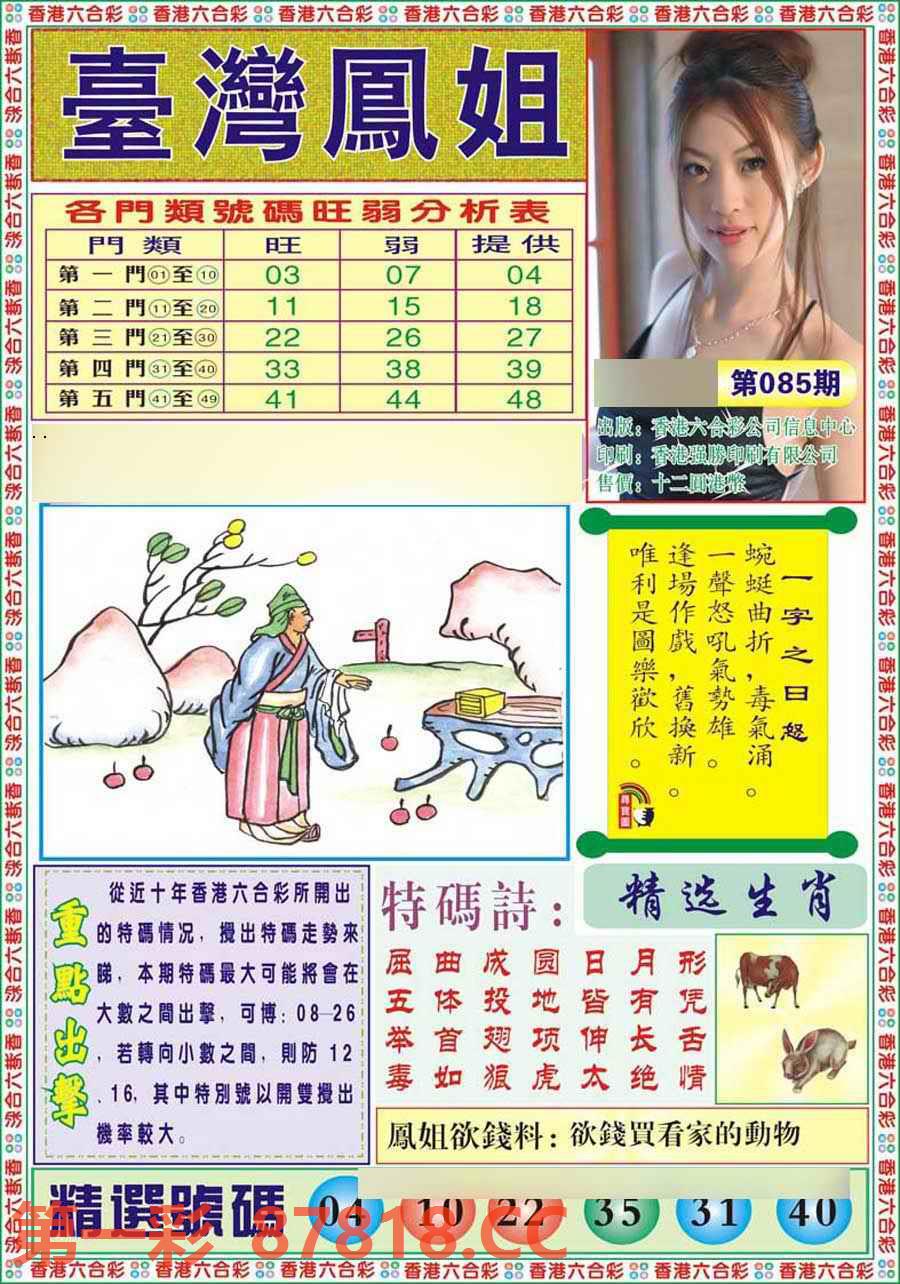 香港六合彩 香港六合彩 香港六合彩 香港六合彩 香港六合彩 香港六合彩 香港六合彩
臺灣鳳姐
各門類號碼旺弱分析表
門類 旺 弱 提供
第一門①至⑩ 03 07 04
第二門⑪至⑳ 11 15 18
第三門㉑至㉚ 22 26 27
第四門㉛至㊵ 33 38 39
第五門㊶至㊾ 41 44 48
第085期
出版：香港六合彩公司信息中心
印刷：香港强勝印刷有限公司
售價：十二圓港幣
一字之曰：怒
蜿蜒曲折，毒氣涌。
一聲怒吼氣勢雄。
逢場作戲，舊換新。
唯利是圖樂歡欣。
尋寶圖
重點出擊
從近十年香港六合彩所開出
的特碼情况，攪出特碼走勢來
睇，本期特碼最大可能將會在
大數之間出擊，可博：08—26
，若轉向小數之間，則防 12
、16，其中特別號以開雙攪出
機率較大。
特碼詩：
屈曲成圆日月形
五体投地皆有凭
举首翅项伸长舌
毒如狼虎太绝情
精选生肖
鳳姐欲錢料：欲錢買看家的動物
精選號碼 04 10 22 35 31 40
第一彩 87818.CC
香港六合彩 香港六合彩 香港六合彩 香港六合彩 香港六合彩 香港六合彩 香港六合彩